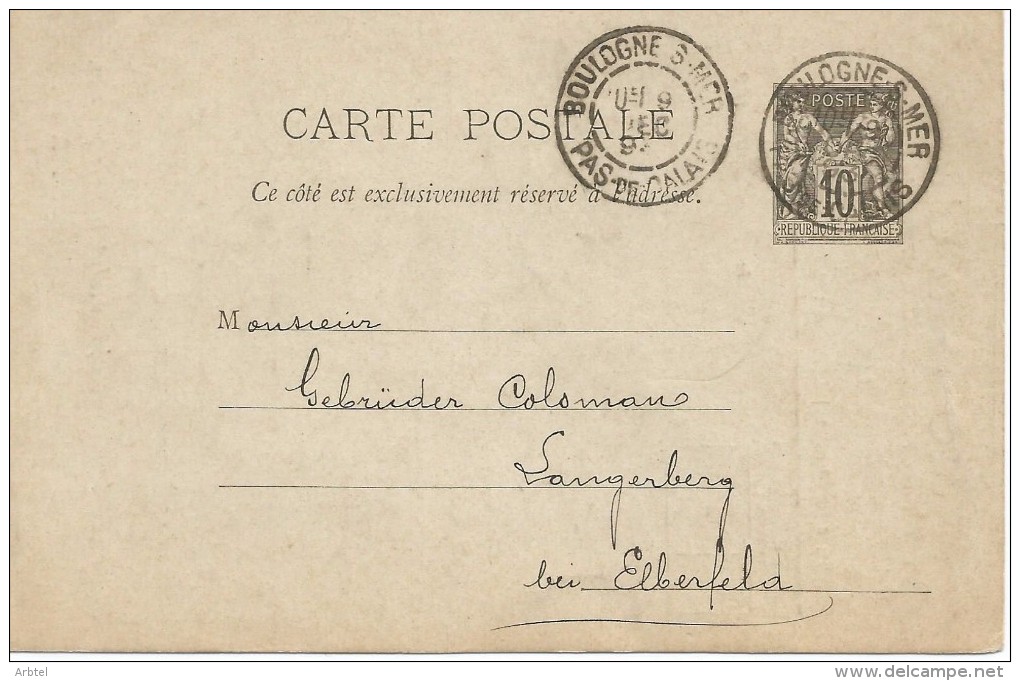 BOULOGNE-S-MER
9
DEC
PAS-DE-CALAIS
BOULOGNE-S-MER
POSTE
10
REPUBLIQUE FRANCAISE
CARTE POSTALE
Ce côté est exclusivement réservé à l'adresse.
Monsieur
Gebrüder Colsman
Langerberg
bei Elberfeld
Arbtel
http://www.delcampe.net